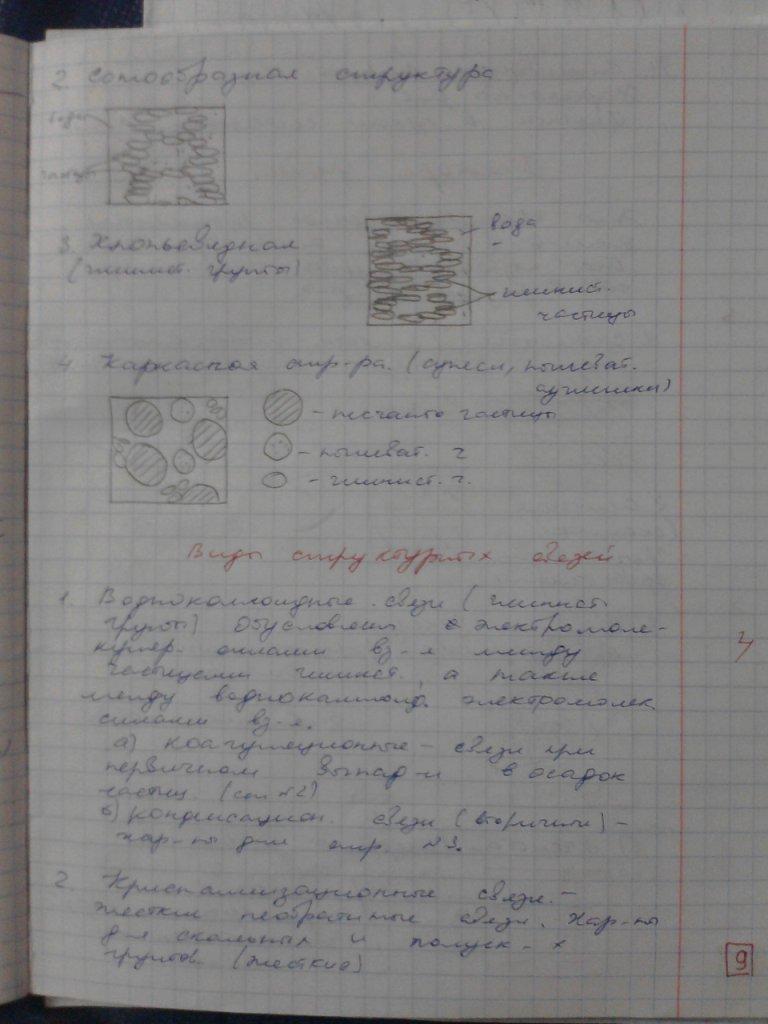 2. Сотообразная структура
вода
глины
3. Хлопьевидная
(глинист. грунты)
вода
глинист.
частицы
4. Каркасная стр-ра. (супеси, пылеват.
суглинки)
– песчаные частицы
– пылеват. ч
– глинист. ч.
Виды структурных связей
1. Водноколлоидные связи (глинист.
грунты) Обусловлены электромоле-
куляр. силами вз-я между
частицами глинист., а также
между воднколлоид. электромолек
силами вз-я.
а) коагуляционные – связи при
первичном выпад-и в осадок
частиц (стр №2)
б) конденсацион. связи (вторичные) –
хар-ны для стр. №3.
2. Кристаллизационные связи. –
жесткие необратимые связи. Хар-ны
для скальных и полуск-х
грунтов. (жесткие)
4
9